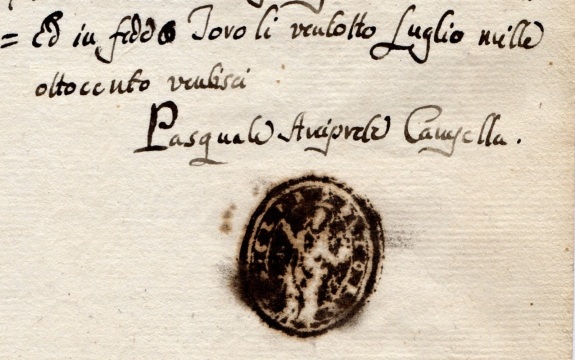 = Ed in fede Toro li ventotto Luglio mille
ottocento ventisei
Pasquale Arciprete Cangella.